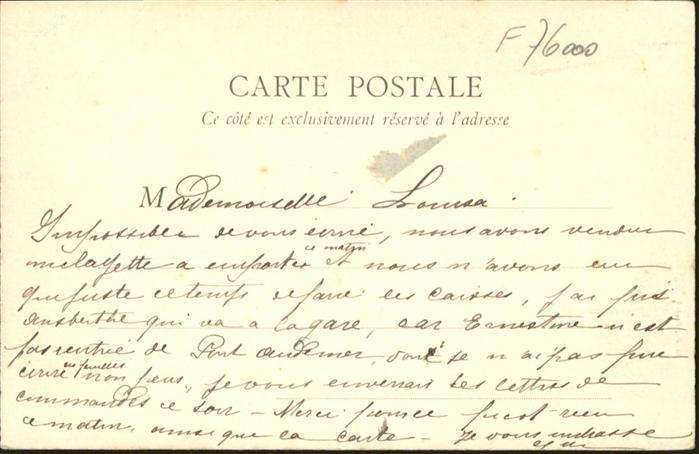 F 76000
CARTE POSTALE
Ce côté est exclusivement réservé à l'adresse
Mademoiselle Louisa
Impossible de vous écrire, nous avons vendu
ce matin
une layette a emporter et nous n'avons eu
que juste le temps de faire les caisses, j'ai pris
qui va a la gare, car Ernestine n'est
pas rentrée de Pont Audemer, donc je n'ai pas
écrire non plus, je vous enverrai les lettres de
commandes ce soir - Merci
ce matin, ainsi que la carte - Je vous embrasse